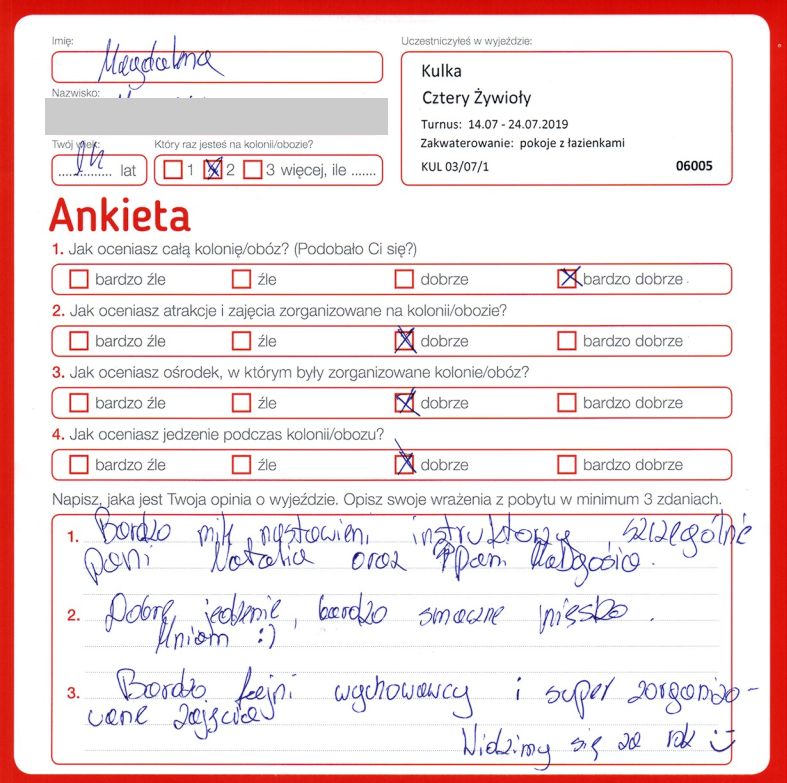 Imię:
Magdalena
Uczestniczyłeś w wyjeździe:
Kulka
Cztery Żywioły
Turnus: 14.07 - 24.07.2019
Zakwaterowanie: pokoje z łazienkami
KUL 03/07/1 06005
Nazwisko:
Twój wiek:
lat
Który raz jesteś na kolonii/obozie?
1 2 3 więcej, ile .......
Ankieta
1. Jak oceniasz całą kolonię/obóz? (Podobało Ci się?)
bardzo źle źle dobrze bardzo dobrze
2. Jak oceniasz atrakcje i zajęcia zorganizowane na kolonii/obozie?
bardzo źle źle dobrze bardzo dobrze
3. Jak oceniasz ośrodek, w którym były zorganizowane kolonie/obóz?
bardzo źle źle dobrze bardzo dobrze
4. Jak oceniasz jedzenie podczas kolonii/obozu?
bardzo źle źle dobrze bardzo dobrze
Napisz, jaka jest Twoja opinia o wyjeździe. Opisz swoje wrażenia z pobytu w minimum 3 zdaniach.
1. Bardzo mili nastawieni instruktorzy szczególnie
pani Natalia oraz Pani Małgosia.
2. Dobre jedzenie, bardzo smaczne mięsko.
Mniam :)
3. Bardzo fajni wychowawcy i super zorganizo-
wane zajęcia
Widzimy się za rok :)